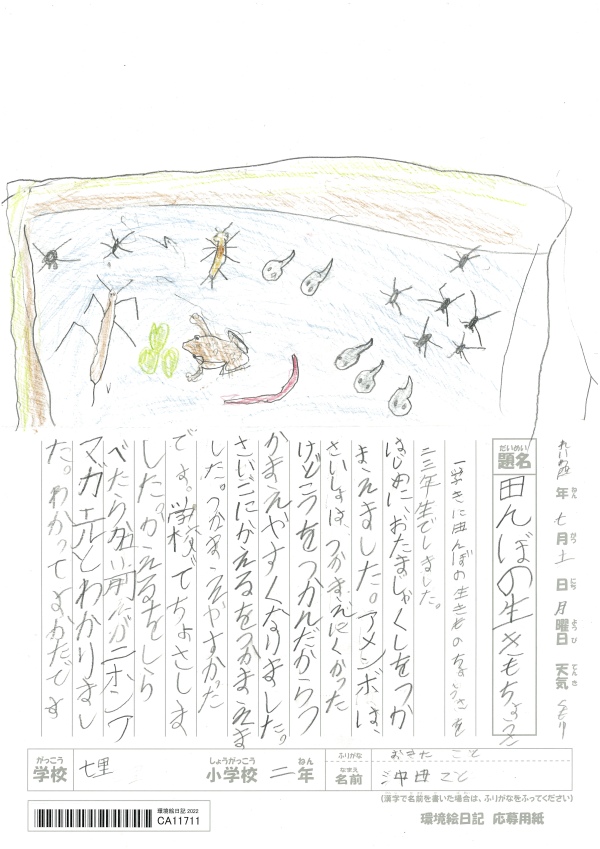 れいわ4年七月土日月曜日天気くもり
ねん
がつ
にち
ようび
てんき
だいめい
題名
田んぼの生きもちょうさ
一学きに田んぼの生きものちょうさを
二三年生でしました。
はじめに、おたまじゃくしをつか
まえました。アメンボは、
さいしょは、つかまえにくかった
けどこうをつかんだからつ
かまえやすくなりました。
さいごにかえるをつかまえま
した。つかまえやすかった
です。学校でちょさしま
した。かえるをしら
べたら名前がニホンア
マガエルとわかりまし
た。わかってよかたです
がっこう
学校
七里
しょうがっこう
小学校
二
ねん
年
ふりがな
おきた こと
なまえ
名前
沖田こと
(漢字で名前を書いた場合は、ふりがなをふってください)
環境絵日記 2022
CA11711
環境絵日記 応募用紙